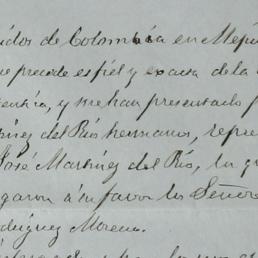 idos de Colombia en Méji
e precede es fiel y exacta de la
entria, y me han presentado
inez del Rio hermanos, repre
José Martinez del Rio, la q
garon á su favor los Señore
odriguez Moreno.